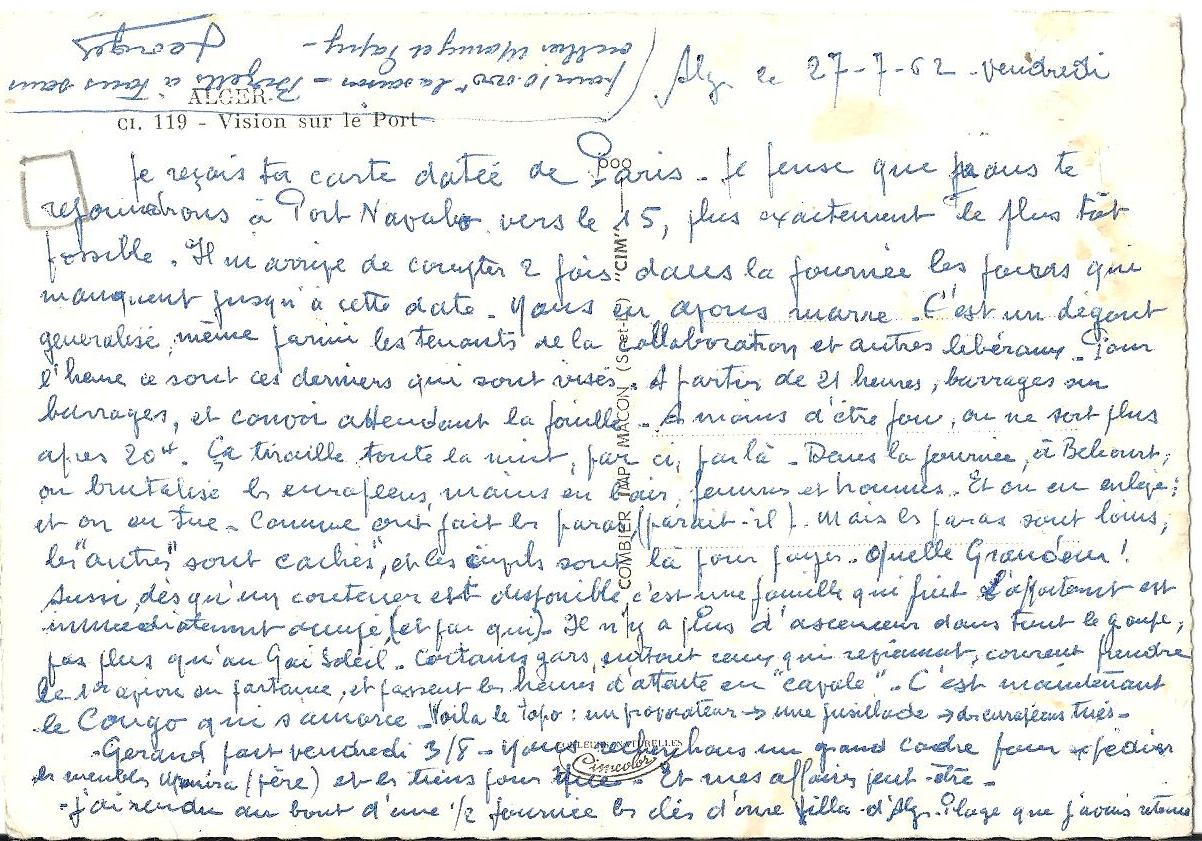 Alg. le 27-7-62 - vendredi
ALGER
CI. 119 - Vision sur le Port
Je reçois ta carte datée de Paris - Je pense que nous te
rejoindrons à Port Navalo vers le 15, plus exactement le plus tôt
possible. Il m'arrive de compter 2 fois dans la journée les jours qui
manquent jusqu'à cette date. Nous en avons marre. C'est un dégout
generalisé, même parmi les tenants de la collaboration et autres libéraux. Pour
l'heure ce sont ces derniers qui sont visés. A partir de 21 heures, barrages sur
barrages, et convoi attendant la fouille. A moins d'être fou, on ne sort plus
apres 20H. Ça tiraille toute la nuit, par ci, par là - Dans la journée, à Belcourt,
on brutalise les européens, mains en l'air, femmes et hommes. Et on en enlève;
et on en tue - Comme ont fait les paras (parait-il). Mais les paras sont loins,
les "autres" sont cachés, et les civils sont là pour payer. Quelle Grandeur!
Aussi, dès qu'un conteneur est disponible, c'est une famille qui fuit. L'appartement est
immédiatement occupé (et par qui). Il n'y a plus d'ascenceur dans tout le groupe,
pas plus qu'au Gai Soleil. Certains gars, surtout ceux qui reviennent, courent prendre
le 1er avion en partance, et passent les heures d'attente en "cavale". C'est maintenant
le Congo qui s'amorce. Voila le topo : un provocateur → une fusillade → des européens tués -
- Gerand part vendredi 3/8 - Nous recherchons un grand cadre pour expédier
les meubles (père) et les tiens pour - Et mes affaires peut-être -
- j'ai rendu au bout d'une 1/2 journée les clés d'une villa d'Alg. Plage que j'avais retenue
pour 10.000 la saison - à tous deux
Mamy et Papy -
Georges
COMBIER IMP. MACON (S.-et-L.) "CIM"
COULEURS NATURELLES
Cimcolor